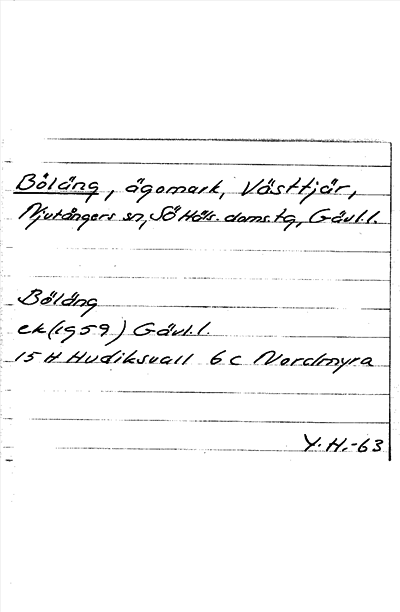 Böläng, ägomark, Västtjär,
Njutångers sn, Sö Häls. doms.tg, Gävl.l.
Böläng
ek (1959) Gävl.l.
15 H Hudiksvall 6 c Nordmyra
Y.H.-63